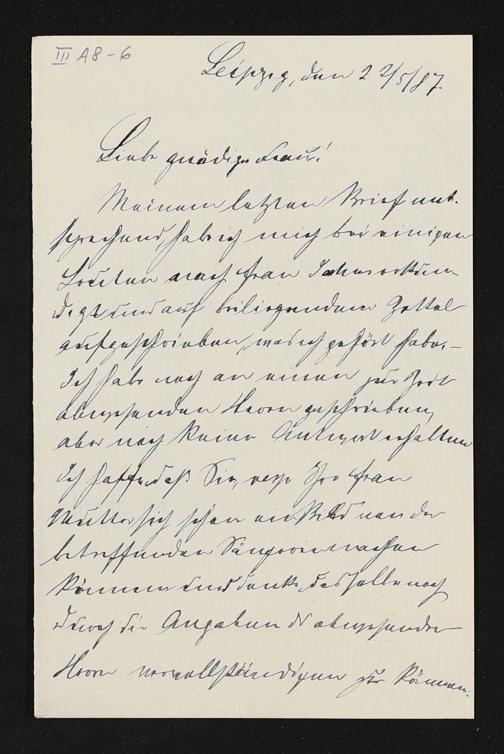 III A8-6
Leipzig, den 22/5/87.
Liebe gnädige Frau!
Meinem letzten Brief ent-
sprechend habe ich mich bei einigen
Leuten nach Frau erkun-
digt und auf beiliegendem Zettel
aufgeschrieben, was ich gehört habe. –
Ich habe noch an einen zur Zeit
abwesenden Herrn geschrieben,
aber noch keine Antwort erhalten
Ich hoffe, daß Sie, resp. Ihre Frau
Mutter sich schon ein Bild von der
betreffenden Sängerin machen
können und denke, dasselbe noch
durch die Angaben d. abwesenden
Herrn vervollständigen zu können.